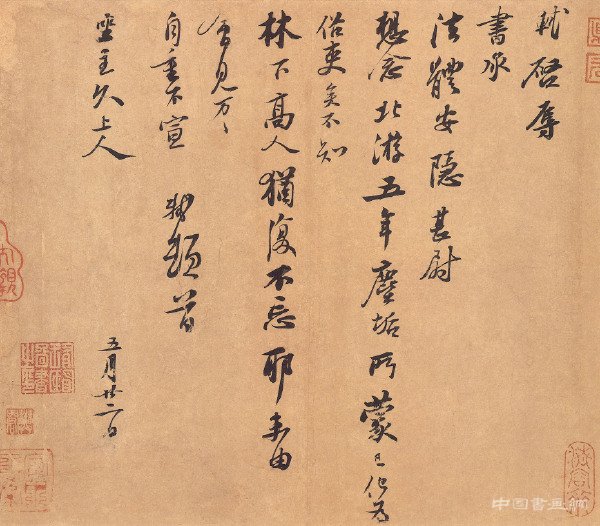 軾啓辱
書承
法體安隱甚尉
想念北游五年塵垢所蒙已化為
俗吏矣不知
林下高人猶復不忘耶未由
會見万〻
自重不宣 軾頓首
坐主久上人
五月廿二日
中国書画網